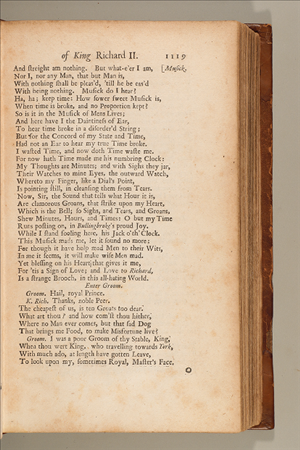 of King Richard II. 1119
And streight am nothing. But what-e'er I am, [Musick,
Nor I, nor any Man, that but Man is,
With nothing shall be pleas'd, 'till he be eas'd
With being nothing. Musick do I hear?
Ha, ha; keep time: How sower sweet Musick is,
When time is broke, and no Proportion kept?
So is it in the Musick of Mens Lives;
And here have I the Daintiness of Ear,
To hear time broke in a disorder'd String;
But for the Concord of my State and Time,
Had not an Ear to hear my true Time broke.
I wasted Time, and now doth Time waste me.
For now hath Time made me his numbring Clock:
My Thoughts are Minutes; and with Sighs they jar,
Their Watches to mine Eyes, the outward Watch,
Whereto my Finger, like a Dial's Point,
Is pointing still, in cleansing them from Tears.
Now, Sir, the Sound that tells what Hour it is,
Are clamorous Groans, that strike upon my Heart,
Which is the Bell; so Sighs, and Tears, and Groans,
Shew Minutes, Hours, and Times: O but my Time
Runs posting on, in Bullingbroke's proud Joy,
While I stand fooling here, his Jack o'th' Clock.
This Musick mads me, let it sound no more;
For though it have holp mad Men to their Wits,
In me it seems, it will make wise Men mad.
Yet blessing on his Heart that gives it me,
For 'tis a Sign of Love; and Love to Richard,
Is a strange Brooch, in this all-hating World.
Enter Groom.
Groom. Hail, royal Prince.
K. Rich. Thanks, noble Peer.
The cheapest of us, is ten Groats too dear.
What art thou? and how com'st thou hither,
Where no Man ever comes, but that sad Dog
That brings me Food, to make Misfortune live?
Groom. I was a poor Groom of thy Stable, King,
When thou wert King, who travelling towards York,
With much ado, at length have gotten Leave,
To look upon my, sometimes Royal, Master's Face.